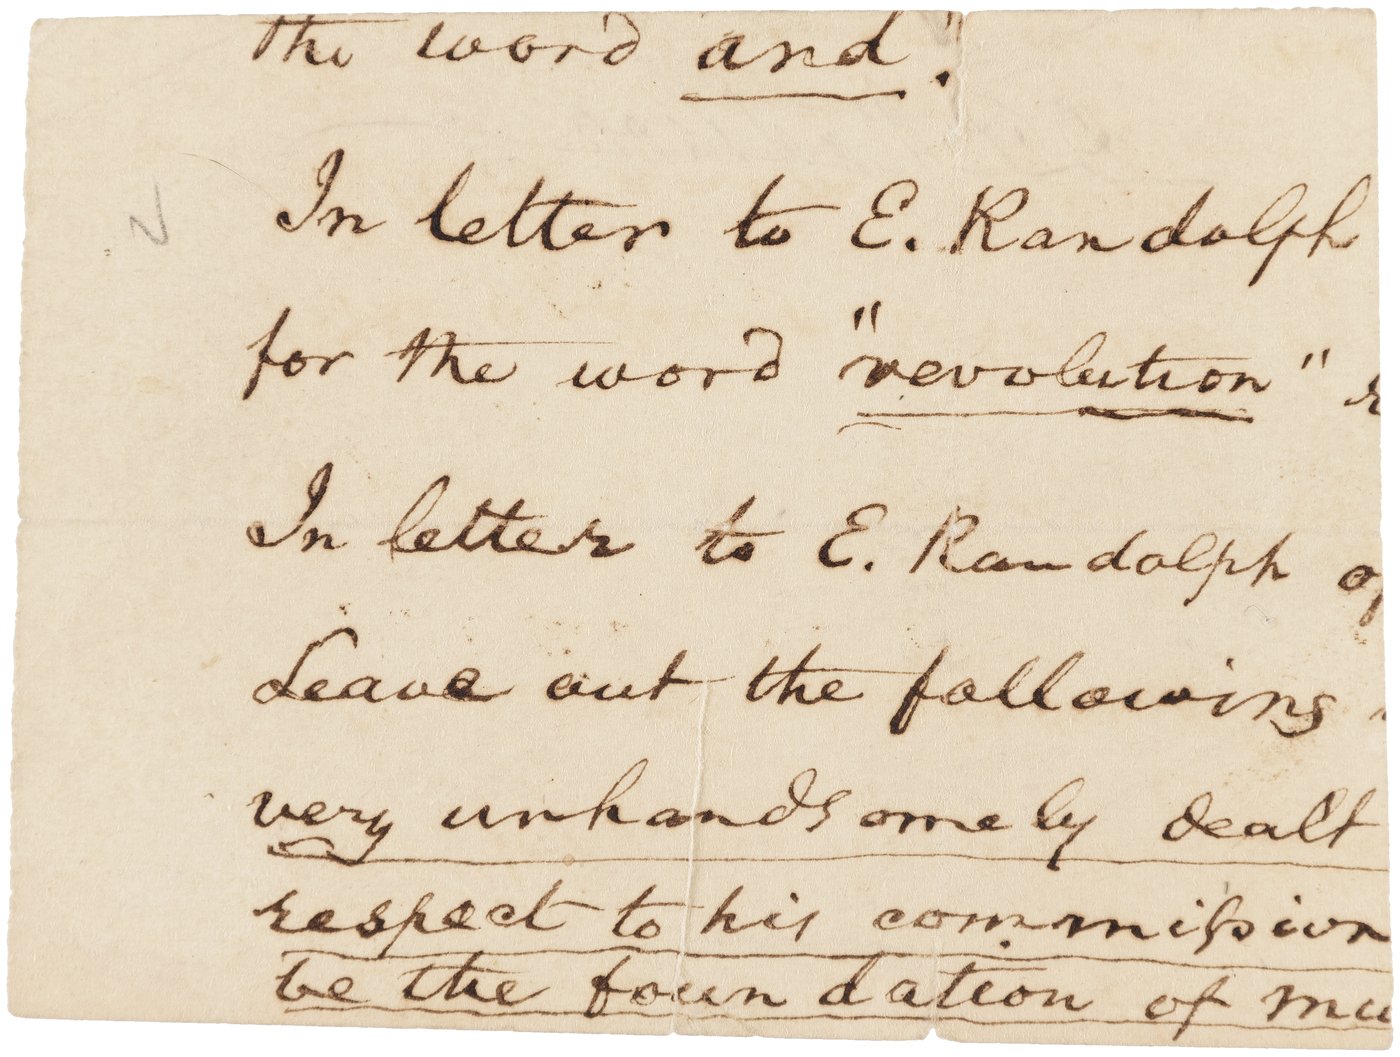 the word and".
In letter to E. Randolph
for the word "revolution"
In letter to E. Randolph
Leave out the following
very unhandsomely dealt
respect to his commission
be the foundation of mu